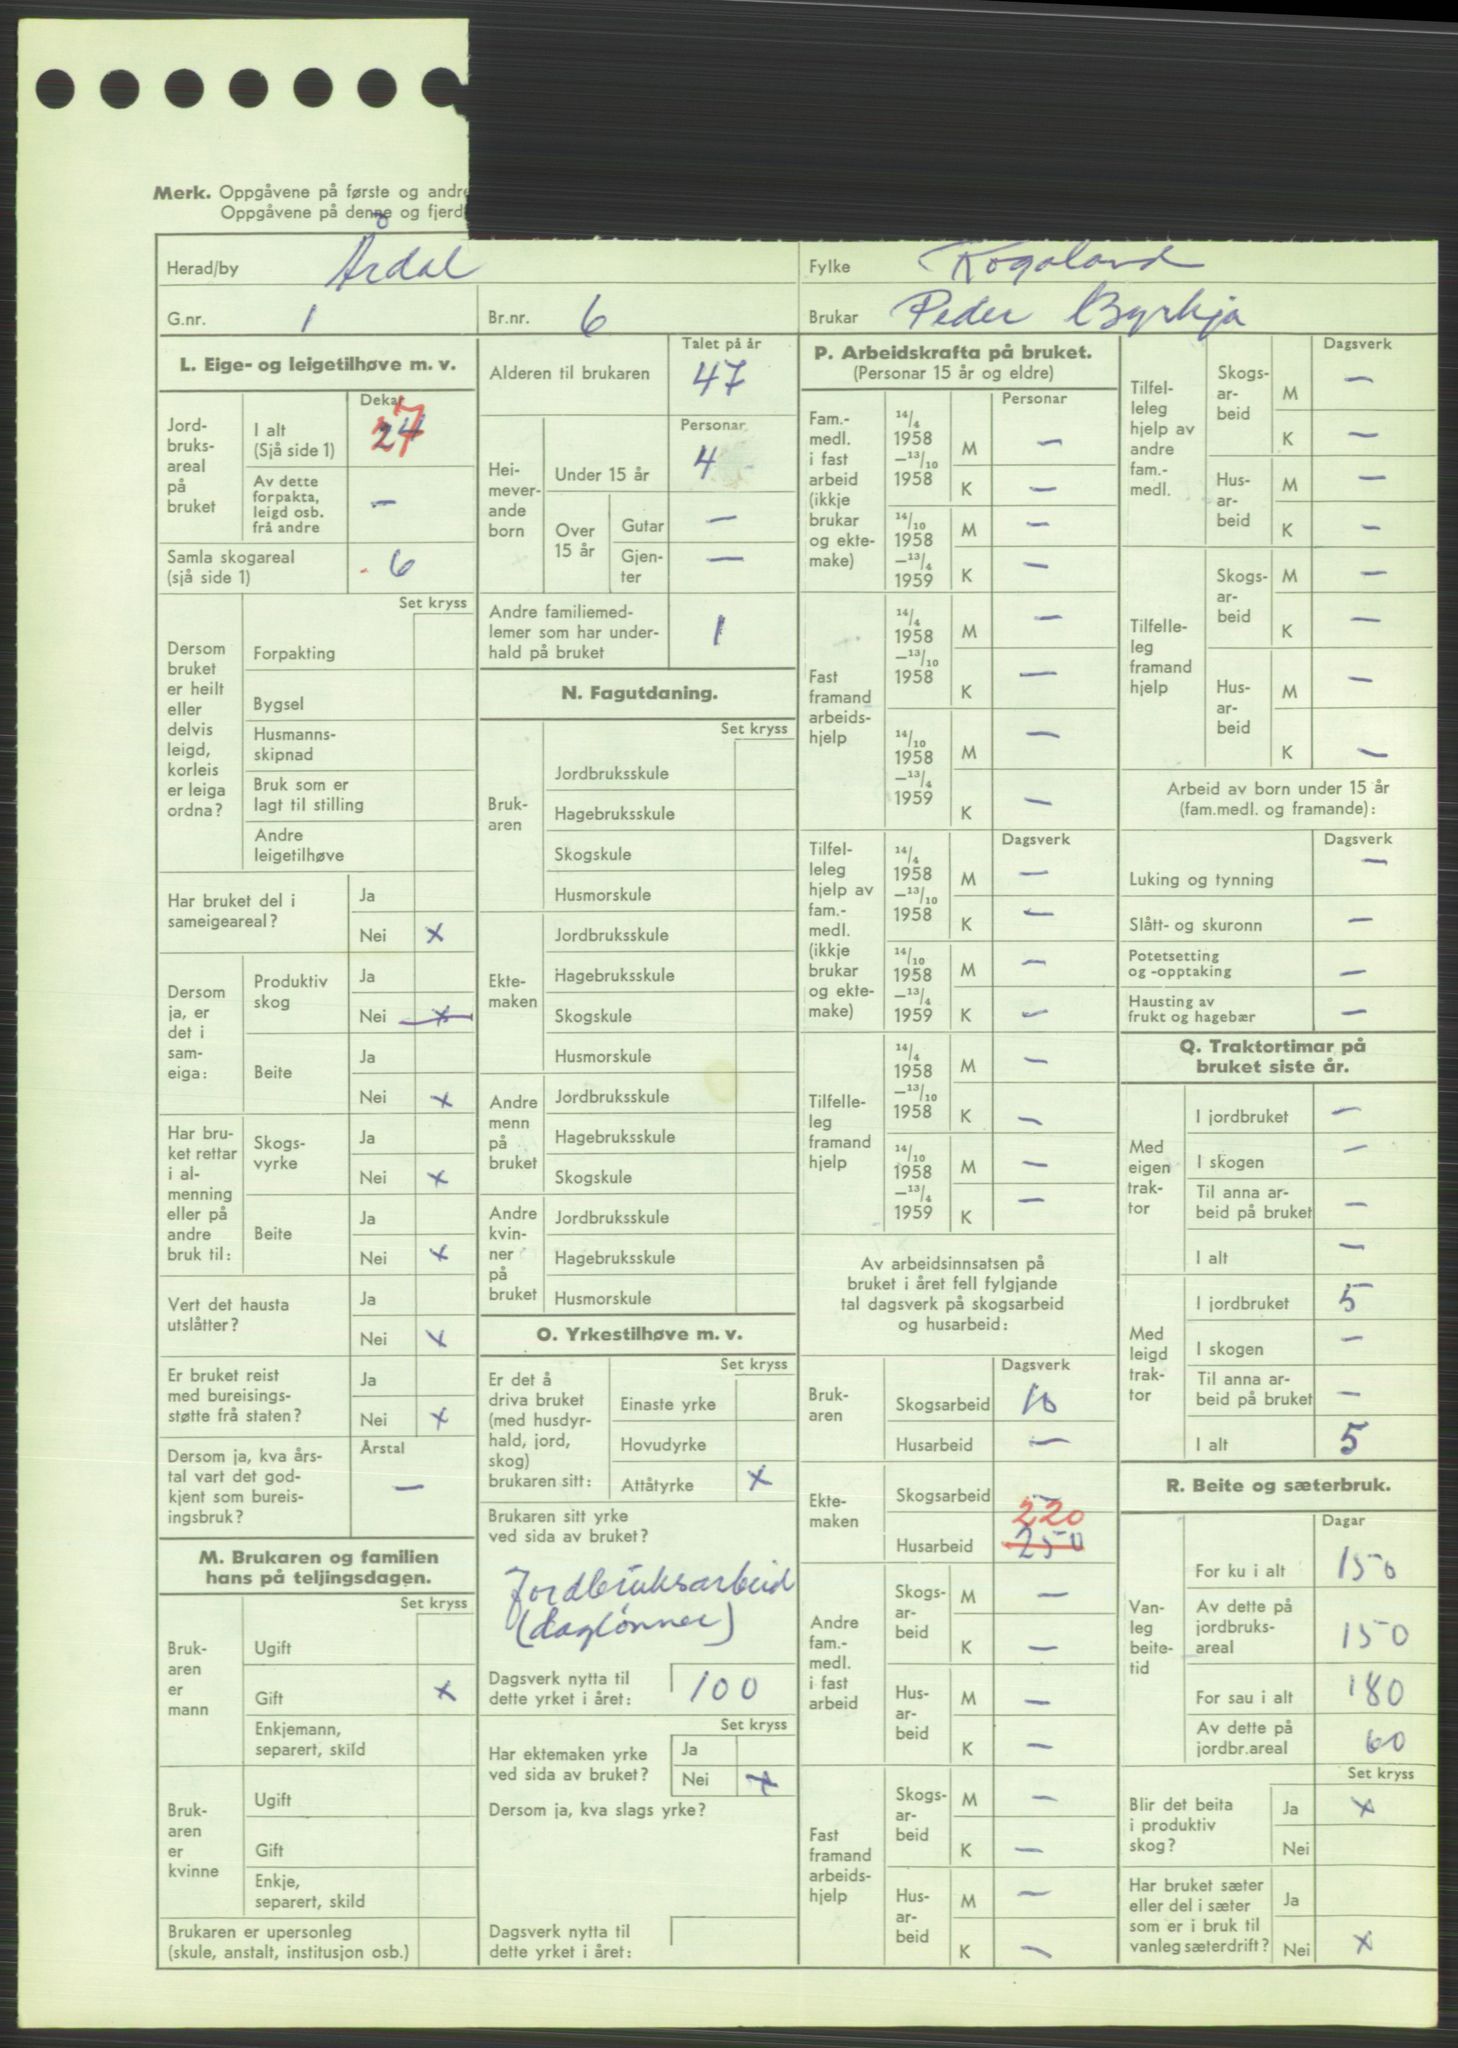 Merk. Oppgåvene på første og andre
Oppgåvene på denne og fjerd
Herad/by Årdal
Fylke Rogaland
G.nr. 1
Br.nr. 6
Brukar Peder Byrkja
L. Eige- og leigetilhøve m. v.
Dekar
Jord-
bruks-
areal
på
bruket
I alt
(Sjå side 1)
24 27
Av dette
forpakta,
leigd osb.
frå andre
—
Samla skogareal
(sjå side 1)
6
Set kryss
Dersom
bruket
er heilt
eller
delvis
leigd,
korleis
er leiga
ordna?
Forpakting
Bygsel
Husmanns-
skipnad
Bruk som er
lagt til stilling
Andre
leigetilhøve
Har bruket del i
sameigeareal?
Ja
Nei x
Dersom
ja, er
det i
sam-
eiga:
Produktiv
skog
Ja
Nei x
Beite
Ja
Nei x
Har bru-
ket rettar
i al-
menning
eller på
andre
bruk til:
Skogs-
vyrke
Ja
Nei x
Beite
Ja
Nei x
Vert det hausta
utslåtter?
Ja
Nei x
Er bruket reist
med bureisings-
støtte frå staten?
Ja
Nei x
Dersom ja, kva års-
tal vart det god-
kjent som bureis-
ingsbruk?
Årstal
—
M. Brukaren og familien
hans på teljingsdagen.
Set kryss
Bruk-
aren
er
mann
Ugift
Gift x
Enkjemann,
separert, skild
Bruk-
aren
er
kvinne
Ugift
Gift
Enkje,
separert, skild
Brukaren er upersonleg
(skule, anstalt, institusjon osb.)
Talet på år
Alderen til brukaren 47
Personar
Hei-
mever-
ande
born
Under 15 år 4
Over
15 år
Gutar —
Gjen-
ter —
Andre familiemed-
lemer som har under-
hald på bruket
1
N. Fagutdaning.
Set kryss
Bruk-
aren
Jordbruksskule
Hagebruksskule
Skogskule
Husmorskule
Ekte-
maken
Jordbruksskule
Hagebruksskule
Skogskule
Husmorskule
Andre
menn
på
bruket
Jordbruksskule
Hagebruksskule
Skogskule
Andre
kvin-
ner
på
bruket
Jordbruksskule
Hagebruksskule
Husmorskule
O. Yrkestilhøve m. v.
Set kryss
Er det å
driva bruket
(med husdyr-
hald, jord,
skog)
brukaren sitt:
Einaste yrke
Hovudyrke
Attåtyrke x
Brukaren sitt yrke
ved sida av bruket?
Jordbruksarbeid
(daglønner)
Dagsverk nytta til
dette yrket i året:
100
Set kryss
Har ektemaken yrke
ved sida av bruket?
Ja
Nei x
Dersom ja, kva slags yrke?
Dagsverk nytta til
dette yrket i året:
P. Arbeidskrafta på bruket.
(Personar 15 år og eldre)
Personar
Fam.-
medl.
i fast
arbeid
(ikkje
brukar
og ekte-
make)
14/4
1958
—13/10
1958
M —
K —
14/10
1958
—13/4
1959
M —
K —
Fast
framand
arbeids-
hjelp
14/4
1958
—13/10
1958
M —
K —
14/10
1958
—13/4
1959
M —
K —
Dagsverk
Tilfel-
leleg
hjelp av
fam.-
medl.
(ikkje
brukar
og ekte-
make)
14/4
1958
—13/10
1958
M —
K —
14/10
1958
—13/4
1959
M —
K —
Tilfelle-
leg
framand
hjelp
14/4
1958
—13/10
1958
M —
K —
14/10
1958
—13/4
1959
M —
K —
Av arbeidsinnsatsen på
bruket i året fell fylgjande
tal dagsverk på skogsarbeid
og husarbeid:
Dagsverk
Bruk-
aren
Skogsarbeid 10
Husarbeid —
Ekte-
maken
Skogsarbeid —
220
Husarbeid 250
Andre
fam.-
medl.
i fast
arbeid
Skogs-
ar-
beid
M —
K —
Hus-
ar-
beid
M —
K —
Fast
framand
arbeids-
hjelp
Skogs-
ar-
beid
M —
K —
Hus-
ar-
beid
M —
K —
Dagsverk
Tilfel-
leleg
hjelp av
andre
fam.-
medl.
Skogs-
ar-
beid
M —
K —
Hus-
ar-
beid
M —
K —
Tilfelle-
leg
framand
hjelp
Skogs-
ar-
beid
M —
K —
Hus-
ar-
beid
M —
K —
Arbeid av born under 15 år
(fam.medl. og framande):
Dagsverk
Luking og tynning —
Slått- og skuronn —
Potetsetting
og -opptaking —
Hausting av
frukt og hagebær —
Q. Traktortimar på
bruket siste år.
Med
eigen
trak-
tor
I jordbruket —
I skogen —
Til anna ar-
beid på bruket —
I alt —
Med
leigd
trak-
tor
I jordbruket 5
I skogen —
Til anna ar-
beid på bruket —
I alt 5
R. Beite og sæterbruk.
Dagar
Van-
leg
beite-
tid
For ku i alt 150
Av dette på
jordbruks-
areal
150
For sau i alt 180
Av dette på
jordbr.areal 60
Set kryss
Blir det beita
i produktiv
skog?
Ja x
Nei
Har bruket sæter
eller del i sæter
som er i bruk til
vanleg sæterdrift?
Ja
Nei x